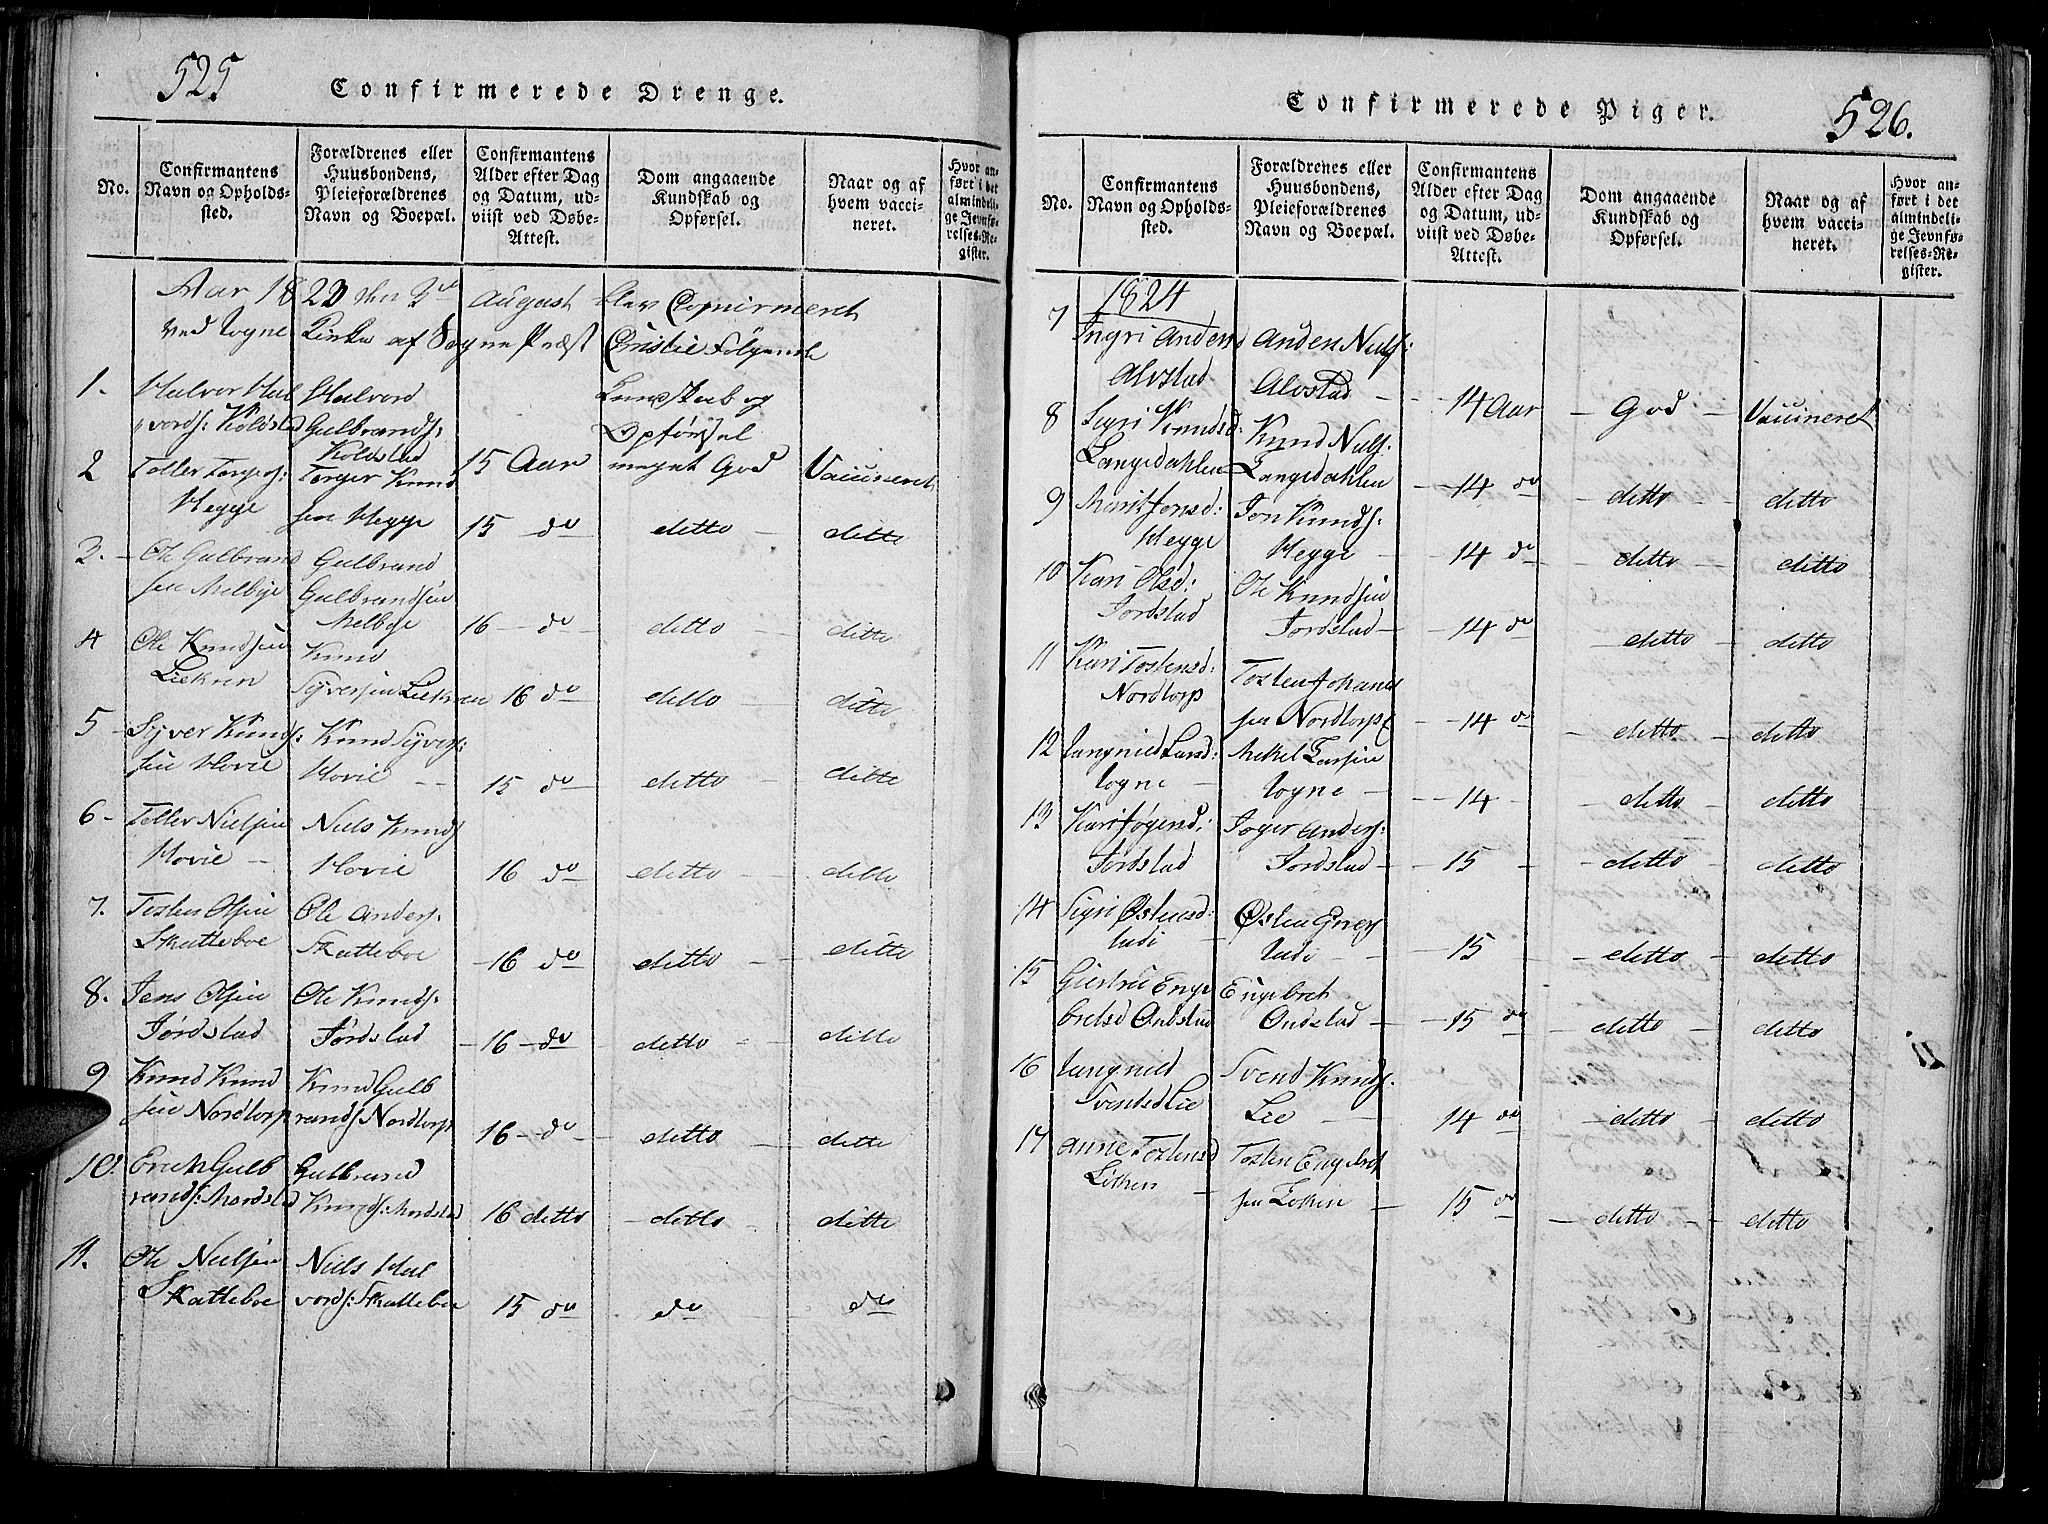 525
Confirmerede Drenge.
No.
Confirmantens Navn og Opholdssted.
Forældrenes eller Huusbondens, Pleieforældrenes Navn og Boepæl.
Confirmantens Alder efter Dag og Datum, udviist ved Døbe-Attest.
Dom angaaende Kundskab og Opførsel.
Naar og af hvem vaccineret.
Hvor anført i det almindelige Jevnførelses-Register.
Aar 1823 den 3de August blev Confirmeret
ved Kirke af Sogne Præst Christie Følgende
1. Halvor Halvords: Koldstad Halvord Gulbrands: Koldstad 15 Aar Kundskab og Opførsel meget God Vaccineret
2 Toller Torgers: Hegge Torger Knudsen Hegge 15 do ditto ditto
3. Ole Gulbrandsen Melbye Gulbrand Gulbrandsen Melbye 16 do ditto ditto
4 Ole Knudsen Liekren Knud Syversen Liekren 16 do ditto ditto
5 Syver Knudsen Hovie Knud Syvers: Hovie 15 do ditto ditto
6 Toller Nielsen Hovie Niels Knuds Hovie 16 do ditto ditto
7. Tosten Olsen Skatteboe Ole Anders: Skatteboe 16 do ditto ditto
8. Jens Olsen Jørdstad Ole Knuds: Jørdstad 16 do ditto ditto
9 Knud Knudsen Nordtorp Knud Gulbrands Nordtorp 16 do ditto ditto
10. Erich Gulbrands: Mordstad Gulbrand Knuds: Mordstad 16 ditto ditto ditto
11. Ole Nielsen Skatteboe Niels Halvords: Skatteboe 15 do do do
Confirmerede Piger.
526.
No.
Confirmantens Navn og Opholdssted.
Forældrenes eller Huusbondens, Pleieforældrenes Navn og Boepæl.
Confirmantens Alder efter Dag og Datum, udviist ved Døbe-Attest.
Dom angaaende Kundskab og Opførsel.
Naar og af hvem vaccineret.
Hvor anført i det almindelige Jevnførelses-Register.
1824
7 Ingri Anders Alvstad Anden Niels: Alvstad 14 Aar God Vaccineret
8 Sigri Knudsd: Langedahlen Knud Niels: Langedahlen 14 do ditto ditto
9 Marit Jonsd: Hegge Jon Knuds: Hegge 14 do ditto ditto
10 Kari Olsd: Jordstad Ole Knudsen Jordstad 14 do ditto ditto
11 Kari Tostensd: Nordtorp Tosten Johannessen Nordtorp 14 do ditto ditto
12 Larsd: Mekel Larsen 14 ditto ditto
13 Kari Jøgend: Jordstad Joger Anders: Jordstad 15 ditto ditto
14 Sigri Østensd: Østen 15 ditto ditto
15 Giertru Engebretsd Ondstad Engebret Ondstad 15 do ditto ditto
16 Svendsd Lie Svend Knuds: Lie 14 do ditto ditto
17 Anne Tostensd Løken Tosten Engebretsen Løken 15 do ditto ditto